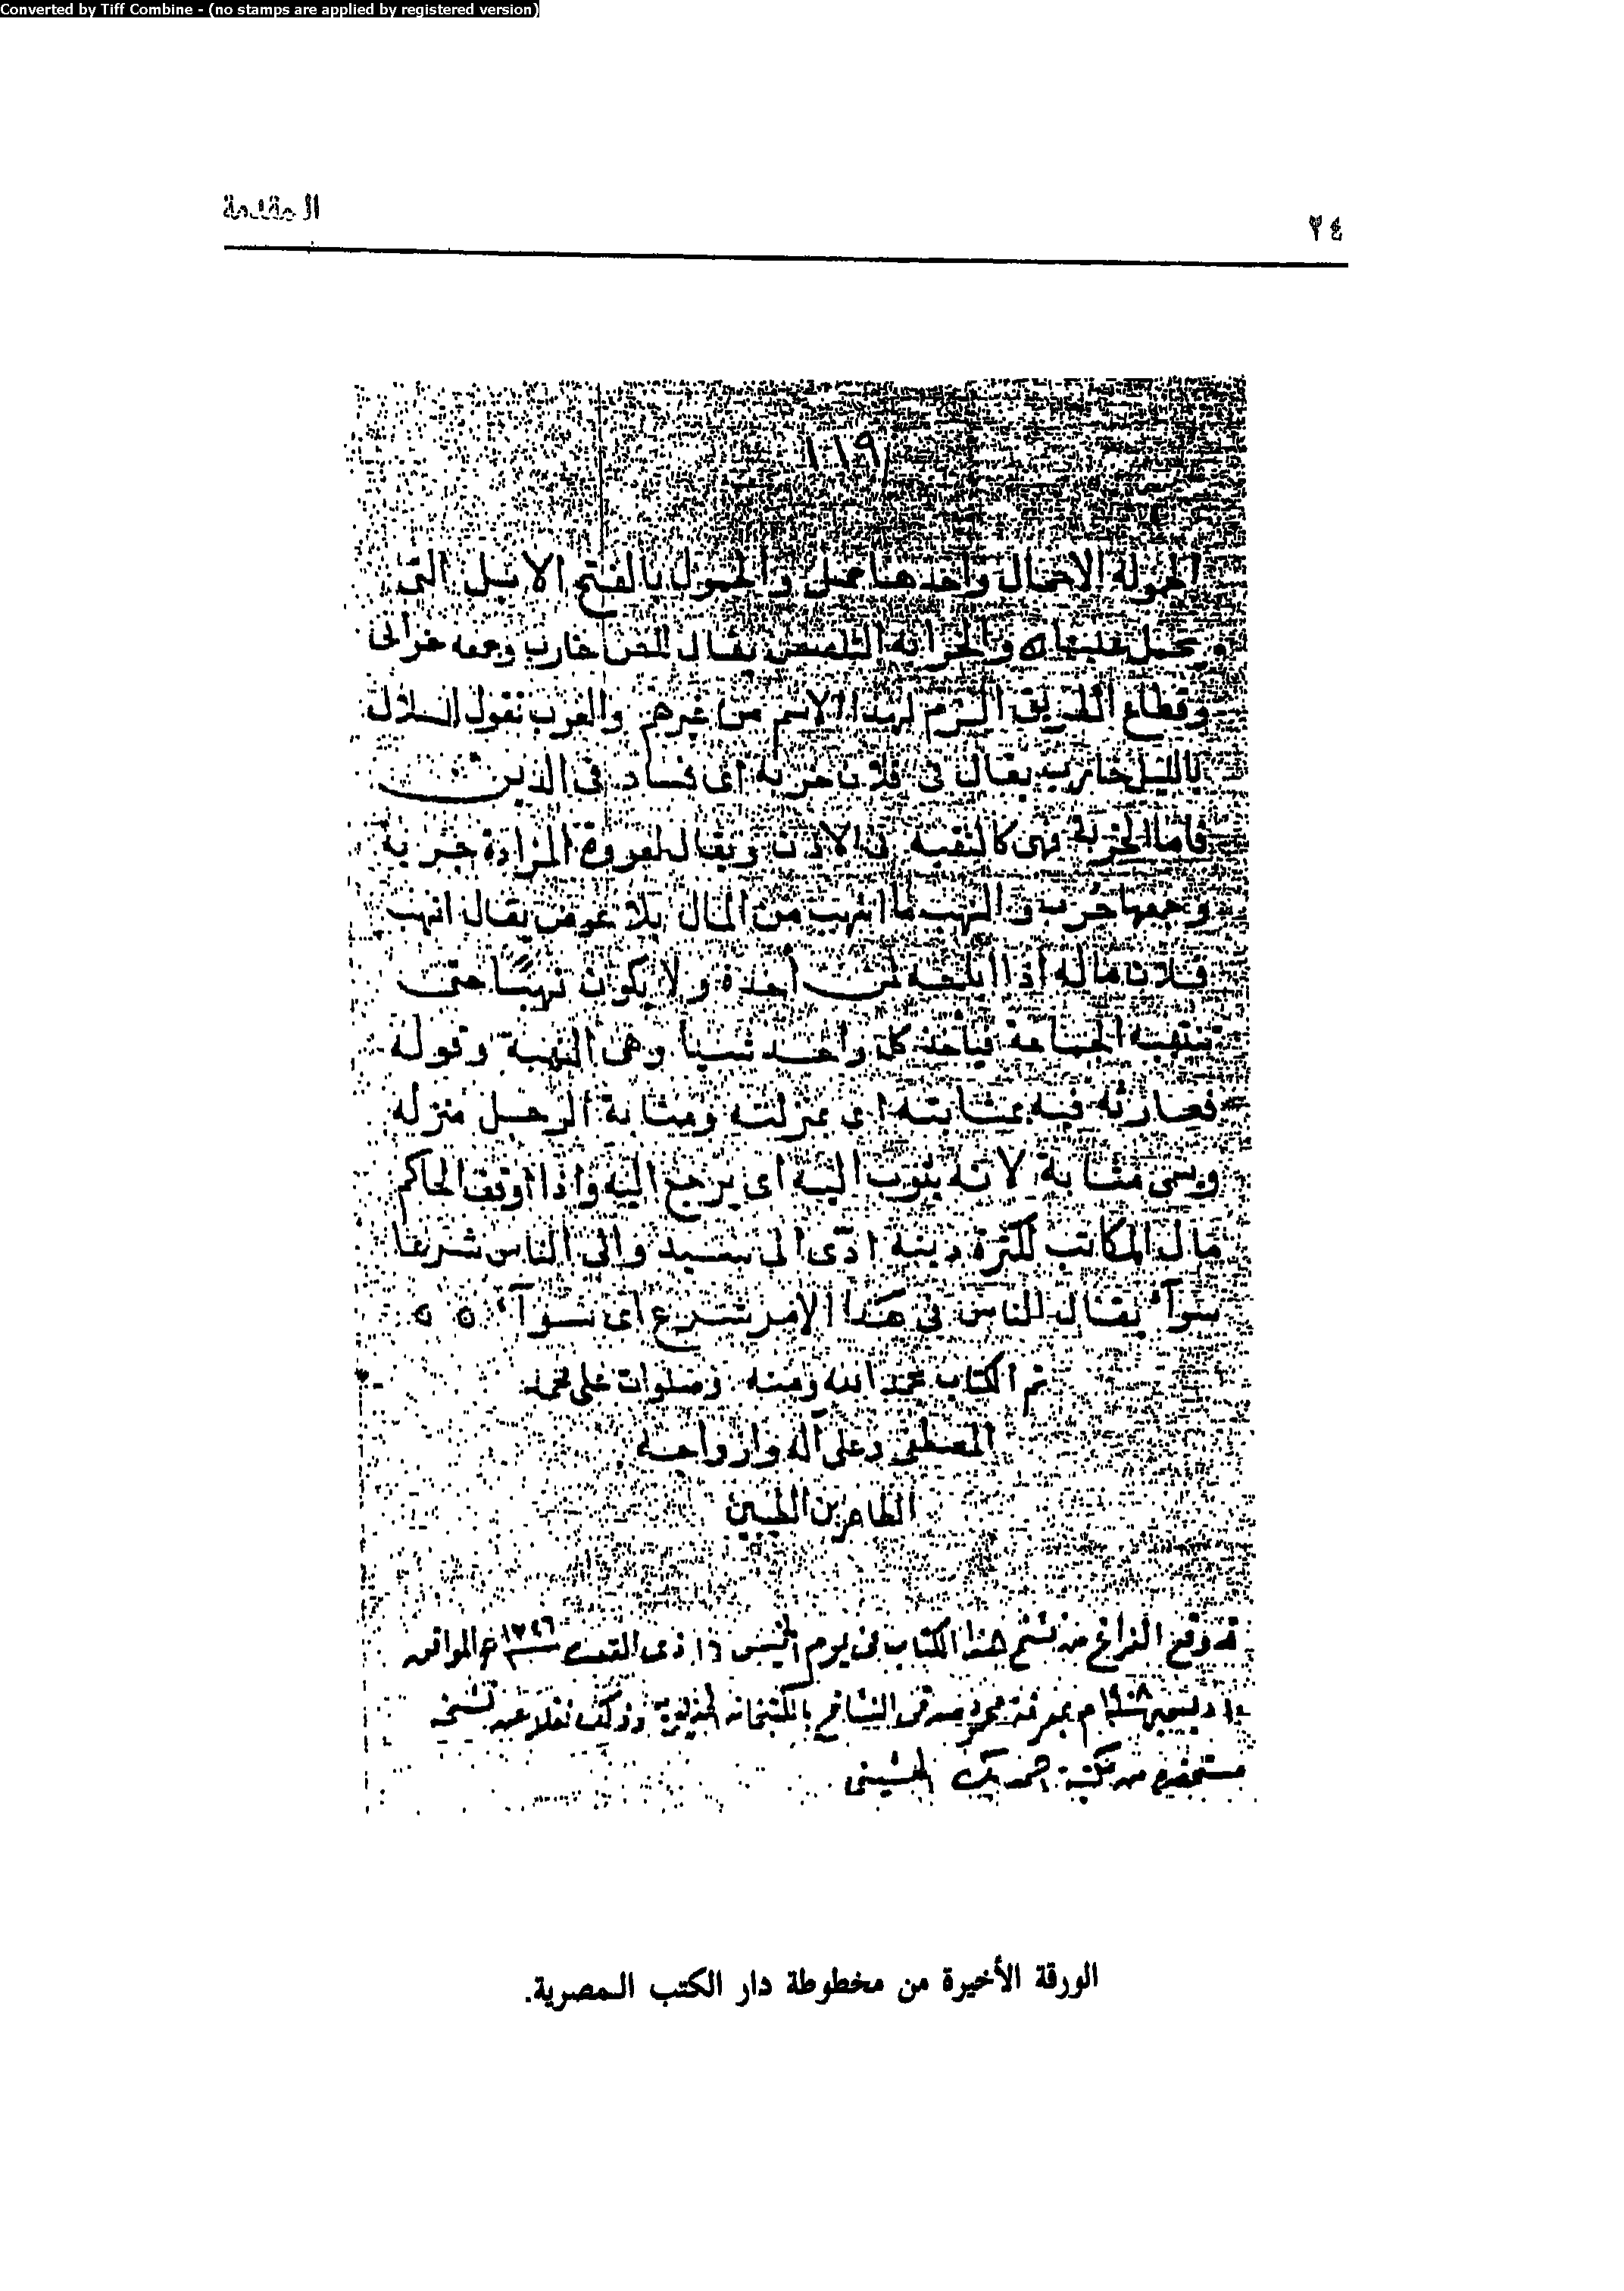 Converted by Tiff Combine - (no stamps are applied by registered version)
٢٤
المقدمة
١١٩
الحمولة الاحمال واحدها حمل والحمول بالفتح الابل التى
يحمل عليها والخرابة التلصص يقال للص خارب وجمعه خراب
وقطاع الطريق الزم لهذا الاسم من غيرهم والعرب تقول السلال
الليل خارب يقال فى فلان خربة اى فساد فى الدين
فاما الخربة فهى كالثقبة فى الاذن ويقال لعروة المزادة خربة
وجمعها خرب والنهب ما انتهب من المال بلا عوض يقال انهب
فلان ماله اذا اباحه لمن أخذه ولا يكون نهبًا حتى
تنتهبه الجماعة فياخذ كل واحد شيئا وهى النهبة وقوله
فصارته فيه بمثابته اى بمنزلته ومثابة الرجل منزله
ويسمى مثابة لانه يثوب اليه اى يرجع اليه واذا اوقف الحاكم
مال المكاتب لكثرة دينه ادى الى سيده والى الناس شرعا
سوآء يقال الناس فى هذا الامر شرع اى سوآء ه ه
تم الكتاب بحمد الله ومنه وصلوات على محمد
المصطفى وعلى آله وازواجه
الطاهرين الطيبين
قد وقع الفراغ من نسخ هذا الكتاب فى يوم الخميس ١٥ ذى القعدة سنة ١٣٢٦ ه الموافق
١٠ ديسمبر سنة ١٩٠٨ م بمعرفة محمود صدقى النساخ بالكتبخانه الخديوية وذلك نقلا عن نسخة
مستحضرة من مكتبة احمد بك الحسينى
الورقة الأخيرة من مخطوطة دار الكتب المصرية.